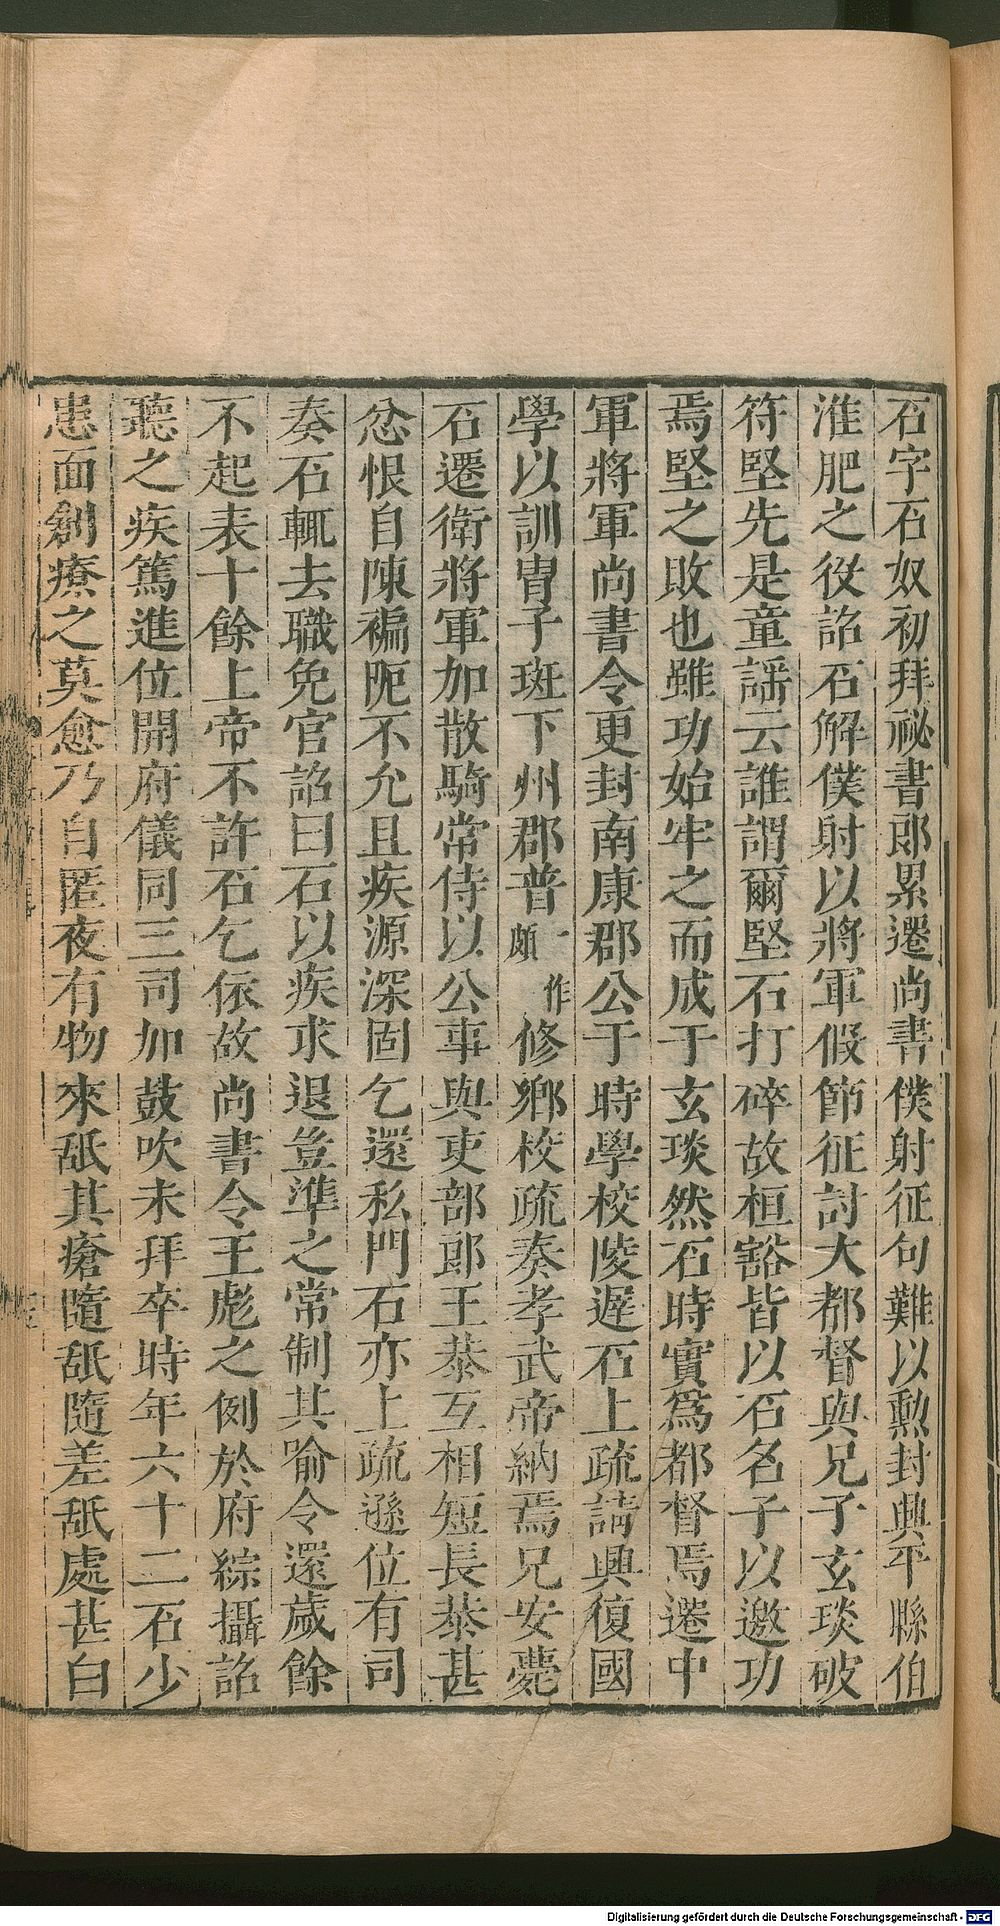 石字石奴初拜祕書郎累遷尚書僕射征句難以勲封興平縣伯
淮肥之役詔石解僕射以將軍假節征討大都督與兄子玄琰破
符堅先是童謡云誰謂爾堅石打碎故桓豁皆以石名子以邀功
焉堅之敗也雖功始牢之而成于玄琰然石時實為都督焉遷中
軍將軍尚書令更封南康郡公于時學校陵遲石上疏請興復國
學以訓胄子班下州郡普一作頗修鄉校疏奏孝武帝納焉兄安薨
石遷衛將軍加散騎常侍以公事與吏部郎王恭互相短長恭甚
忿恨自陳褊阨不允且疾源深固乞還私門石亦上疏遜位有司
奏石輒去職免官詔曰石以疾求退豈準之常制其喻令還歲餘
不起表十餘上帝不許石乞依故尚書令王彪之例於府綜攝詔
聽之疾篤進位開府儀同三司加鼓吹未拜卒時年六十二石少
患面創療之莫愈乃自匿夜有物來舐其瘡隨舐隨差舐處甚白
Digitalisierung gefördert durch die Deutsche Forschungsgemeinschaft - DFG